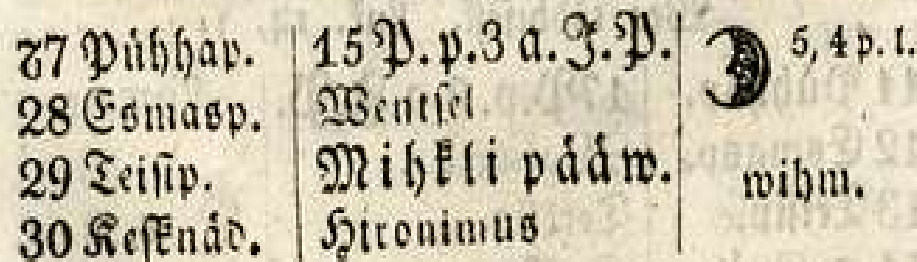 27 Pühhap. 15 P. p. 3 a. J. P. 5, 4 p. l.
28 Esmasp. Wentsel
29 Teisip. Mihkli pääw. wihm.
30 Kesknäd. Hironimus